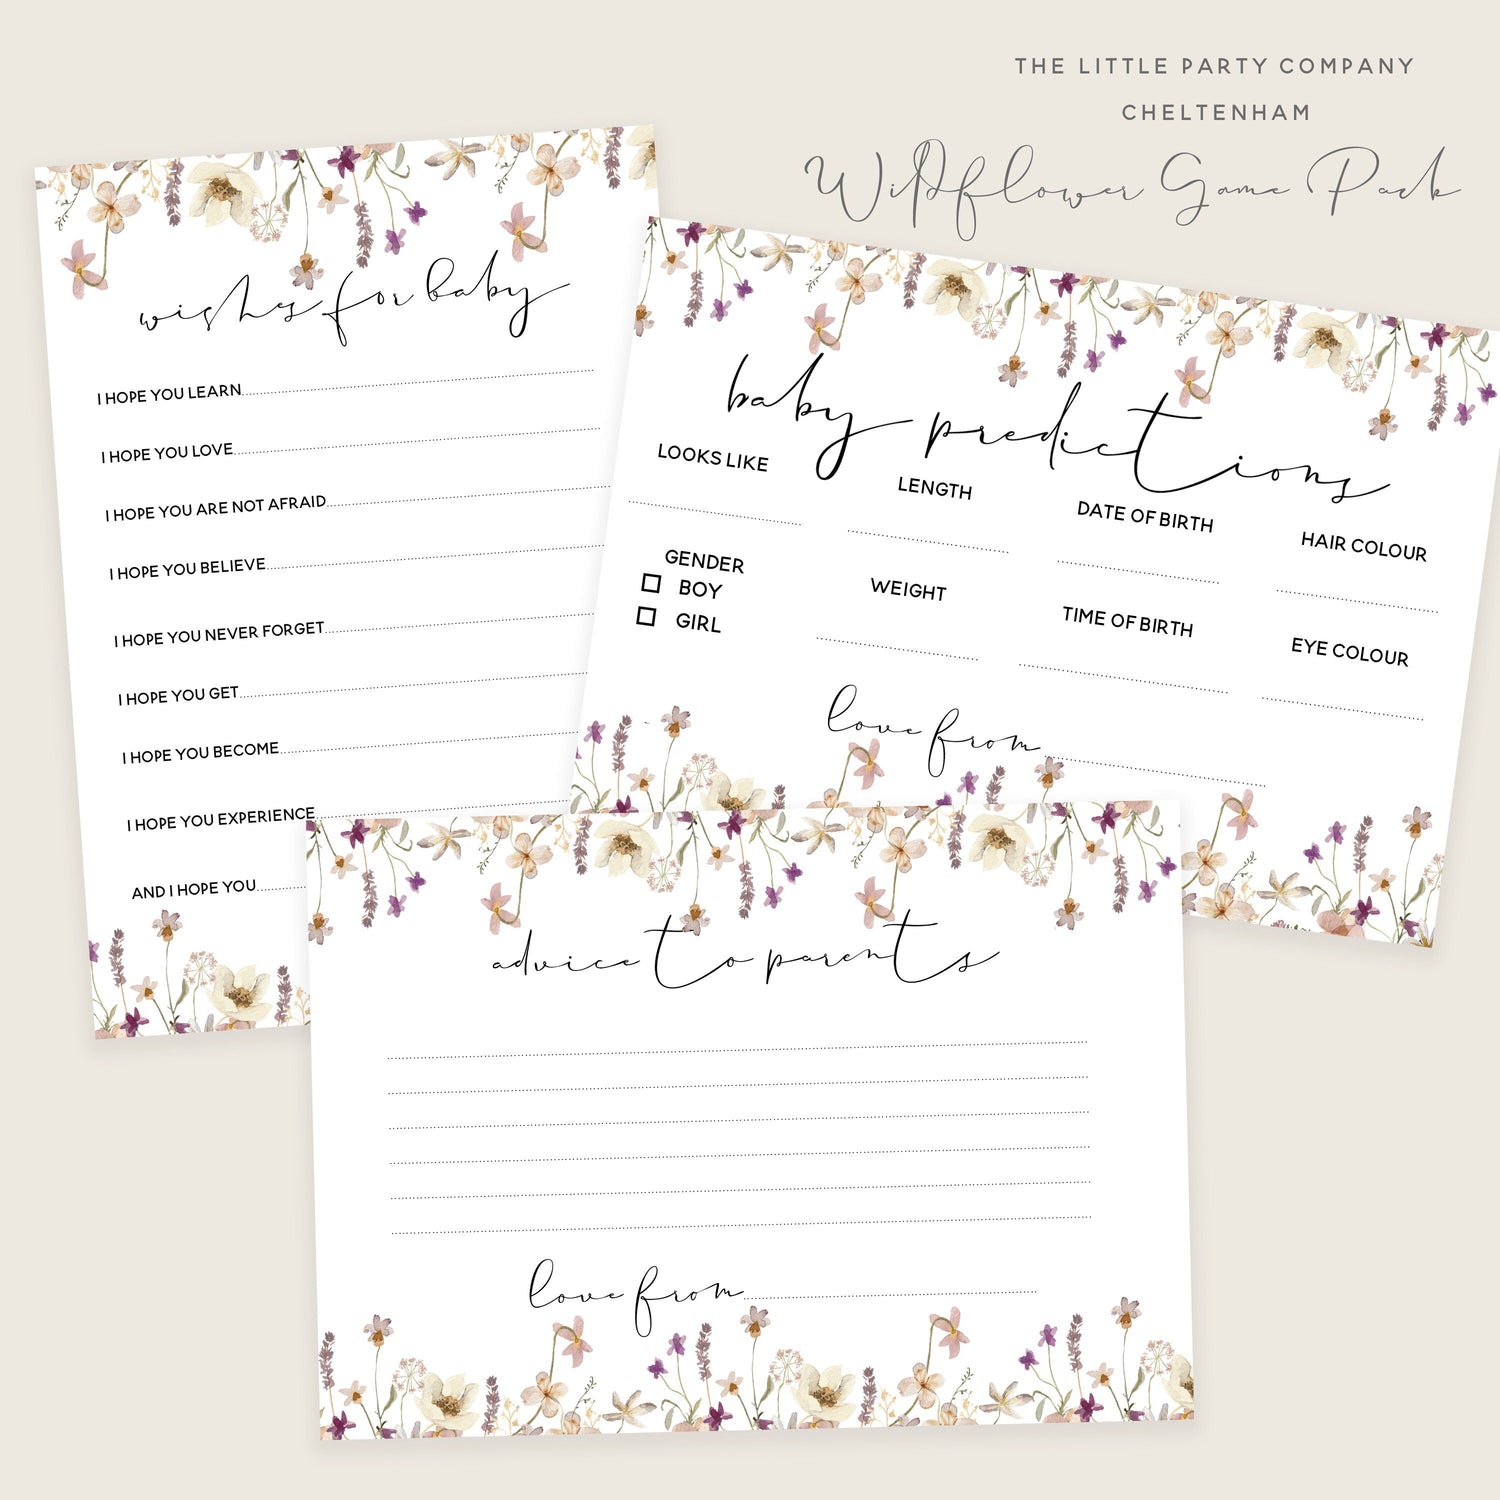 THE LITTLE PARTY COMPANY
CHELTENHAM
Wildflower Game Pack
wishes for baby
I HOPE YOU LEARN
I HOPE YOU LOVE
I HOPE YOU ARE NOT AFRAID
I HOPE YOU BELIEVE
I HOPE YOU NEVER FORGET
I HOPE YOU GET
I HOPE YOU BECOME
I HOPE YOU EXPERIENCE
AND I HOPE YOU
baby predictions
LOOKS LIKE
LENGTH
DATE OF BIRTH
HAIR COLOUR
GENDER
BOY
GIRL
WEIGHT
TIME OF BIRTH
EYE COLOUR
love from
advice to parents
love from